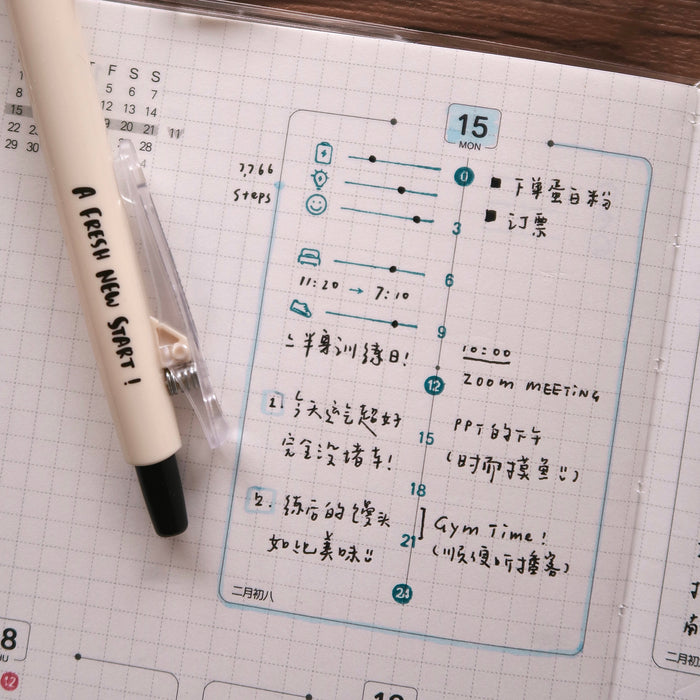 F S S
5 6 7
8
12 13 14
15
22 23
19 20 21
11
29 30
28
4
A FRESH NEW START!
15
MON
7,766
steps
0
3
6
9
12
15
18
21
24
11:20 → 7:10
上半身训练日!
1. 今天运气超好
完全没堵车!
2. 练后的馒头
如此美味!!
下单蛋白粉
订票
10:00
ZOOM MEETING
PPT的下午
(时而摸鱼!!)
Gym Time!
(顺便听播客)
二月初八
8
12
二月初